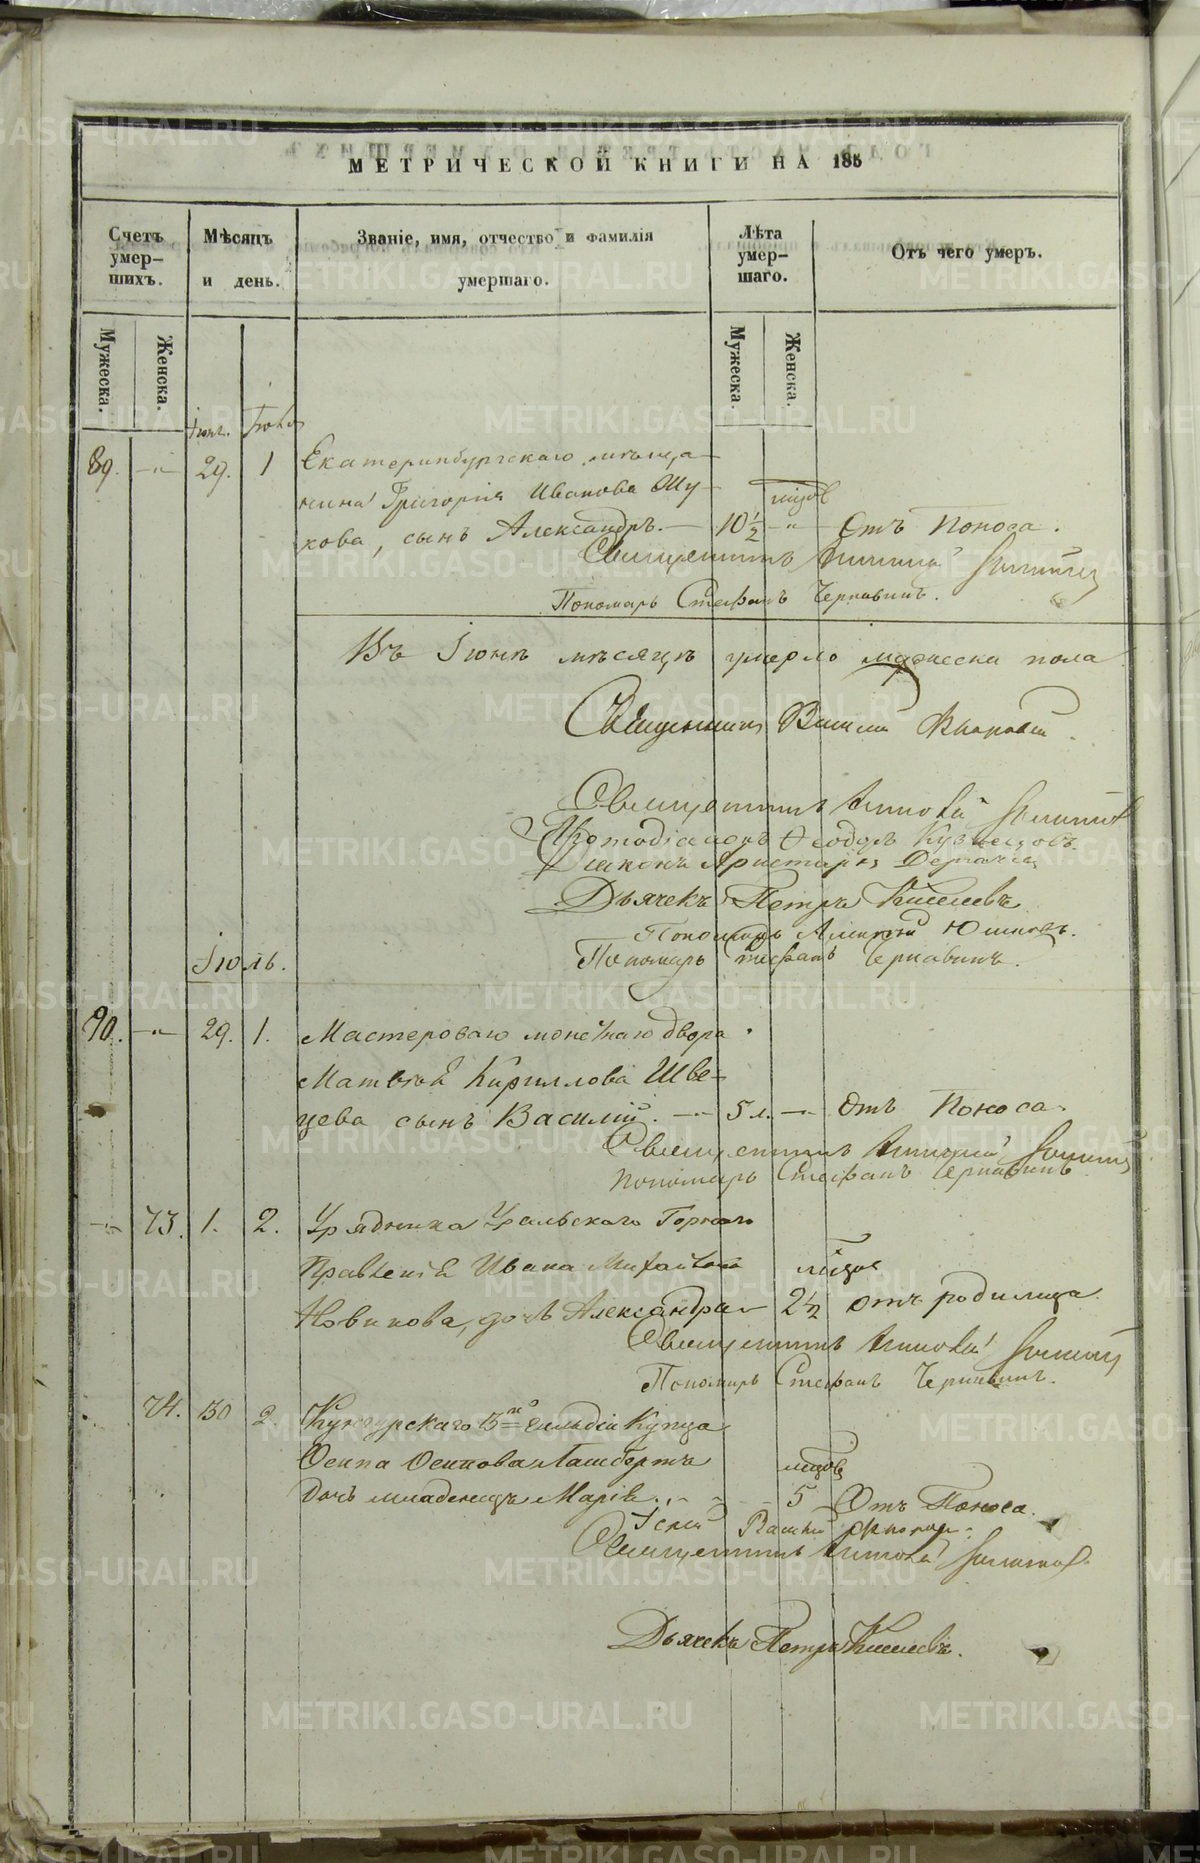 МЕТРИЧЕСКОЙ КНИГИ НА 185
Счетъ умер-шихъ.
Мѣсяцъ и день.
Званіе, имя, отчество и фамилія умершаго.
Лѣта умер-шаго.
Отъ чего умеръ.
Мужеска.
Женска.
Мужеска.
Женска.
89. —"— 29. 1 Екатеринбургскаго мѣща-
нина Григорія Иванова Жу-
кова, сынъ Александръ. — 10 1/2 —"— Отъ Поноса.
Священникъ
Пономарь Стефанъ Чернавинъ.
Въ Іюнѣ мѣсяцѣ умерло мужеска пола
Священникъ Василій
Священникъ
Протодіаконъ Ѳеодоръ Кузнецовъ
Діаконъ Аристархъ
Дьячекъ Петръ Киселевъ
Пономарь Алексѣй Юшковъ.
Пономарь Стефанъ Чернавинъ.
Іюль.
90. —"— 29. 1. Мастероваго монетнаго двора
Матвѣя Кириллова Шве-
цова сынъ Василій. —"— 5 л. —"— Отъ Поноса.
Священникъ
Пономарь Стефанъ Чернавинъ
—"— 73. 1. 2. Урядника Уральскаго Горнаго
Правленія Ивана Михайлова
Новикова, дочь Александра — 2 1/2 отъ родимца.
Священникъ
Пономарь Стефанъ Чернавинъ.
74. 30 2. Кунгурскаго 3й гильдіи Купца
Осипа Осипова
Дочь младенецъ Марія. 5 Отъ Поноса.
Іерей Василій
Священникъ
Дьячекъ Петръ Киселевъ.
METRIKI.GASO-URAL.RU